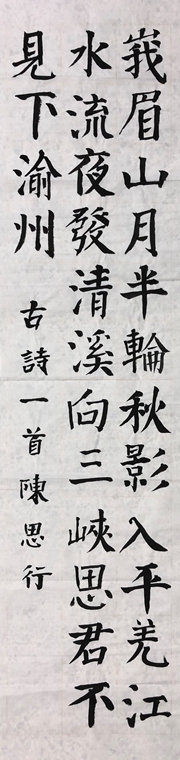 峩眉山月半輪秋影入平羌江
水流夜發清溪向三峽思君不
見下渝州 古詩一首陳思行